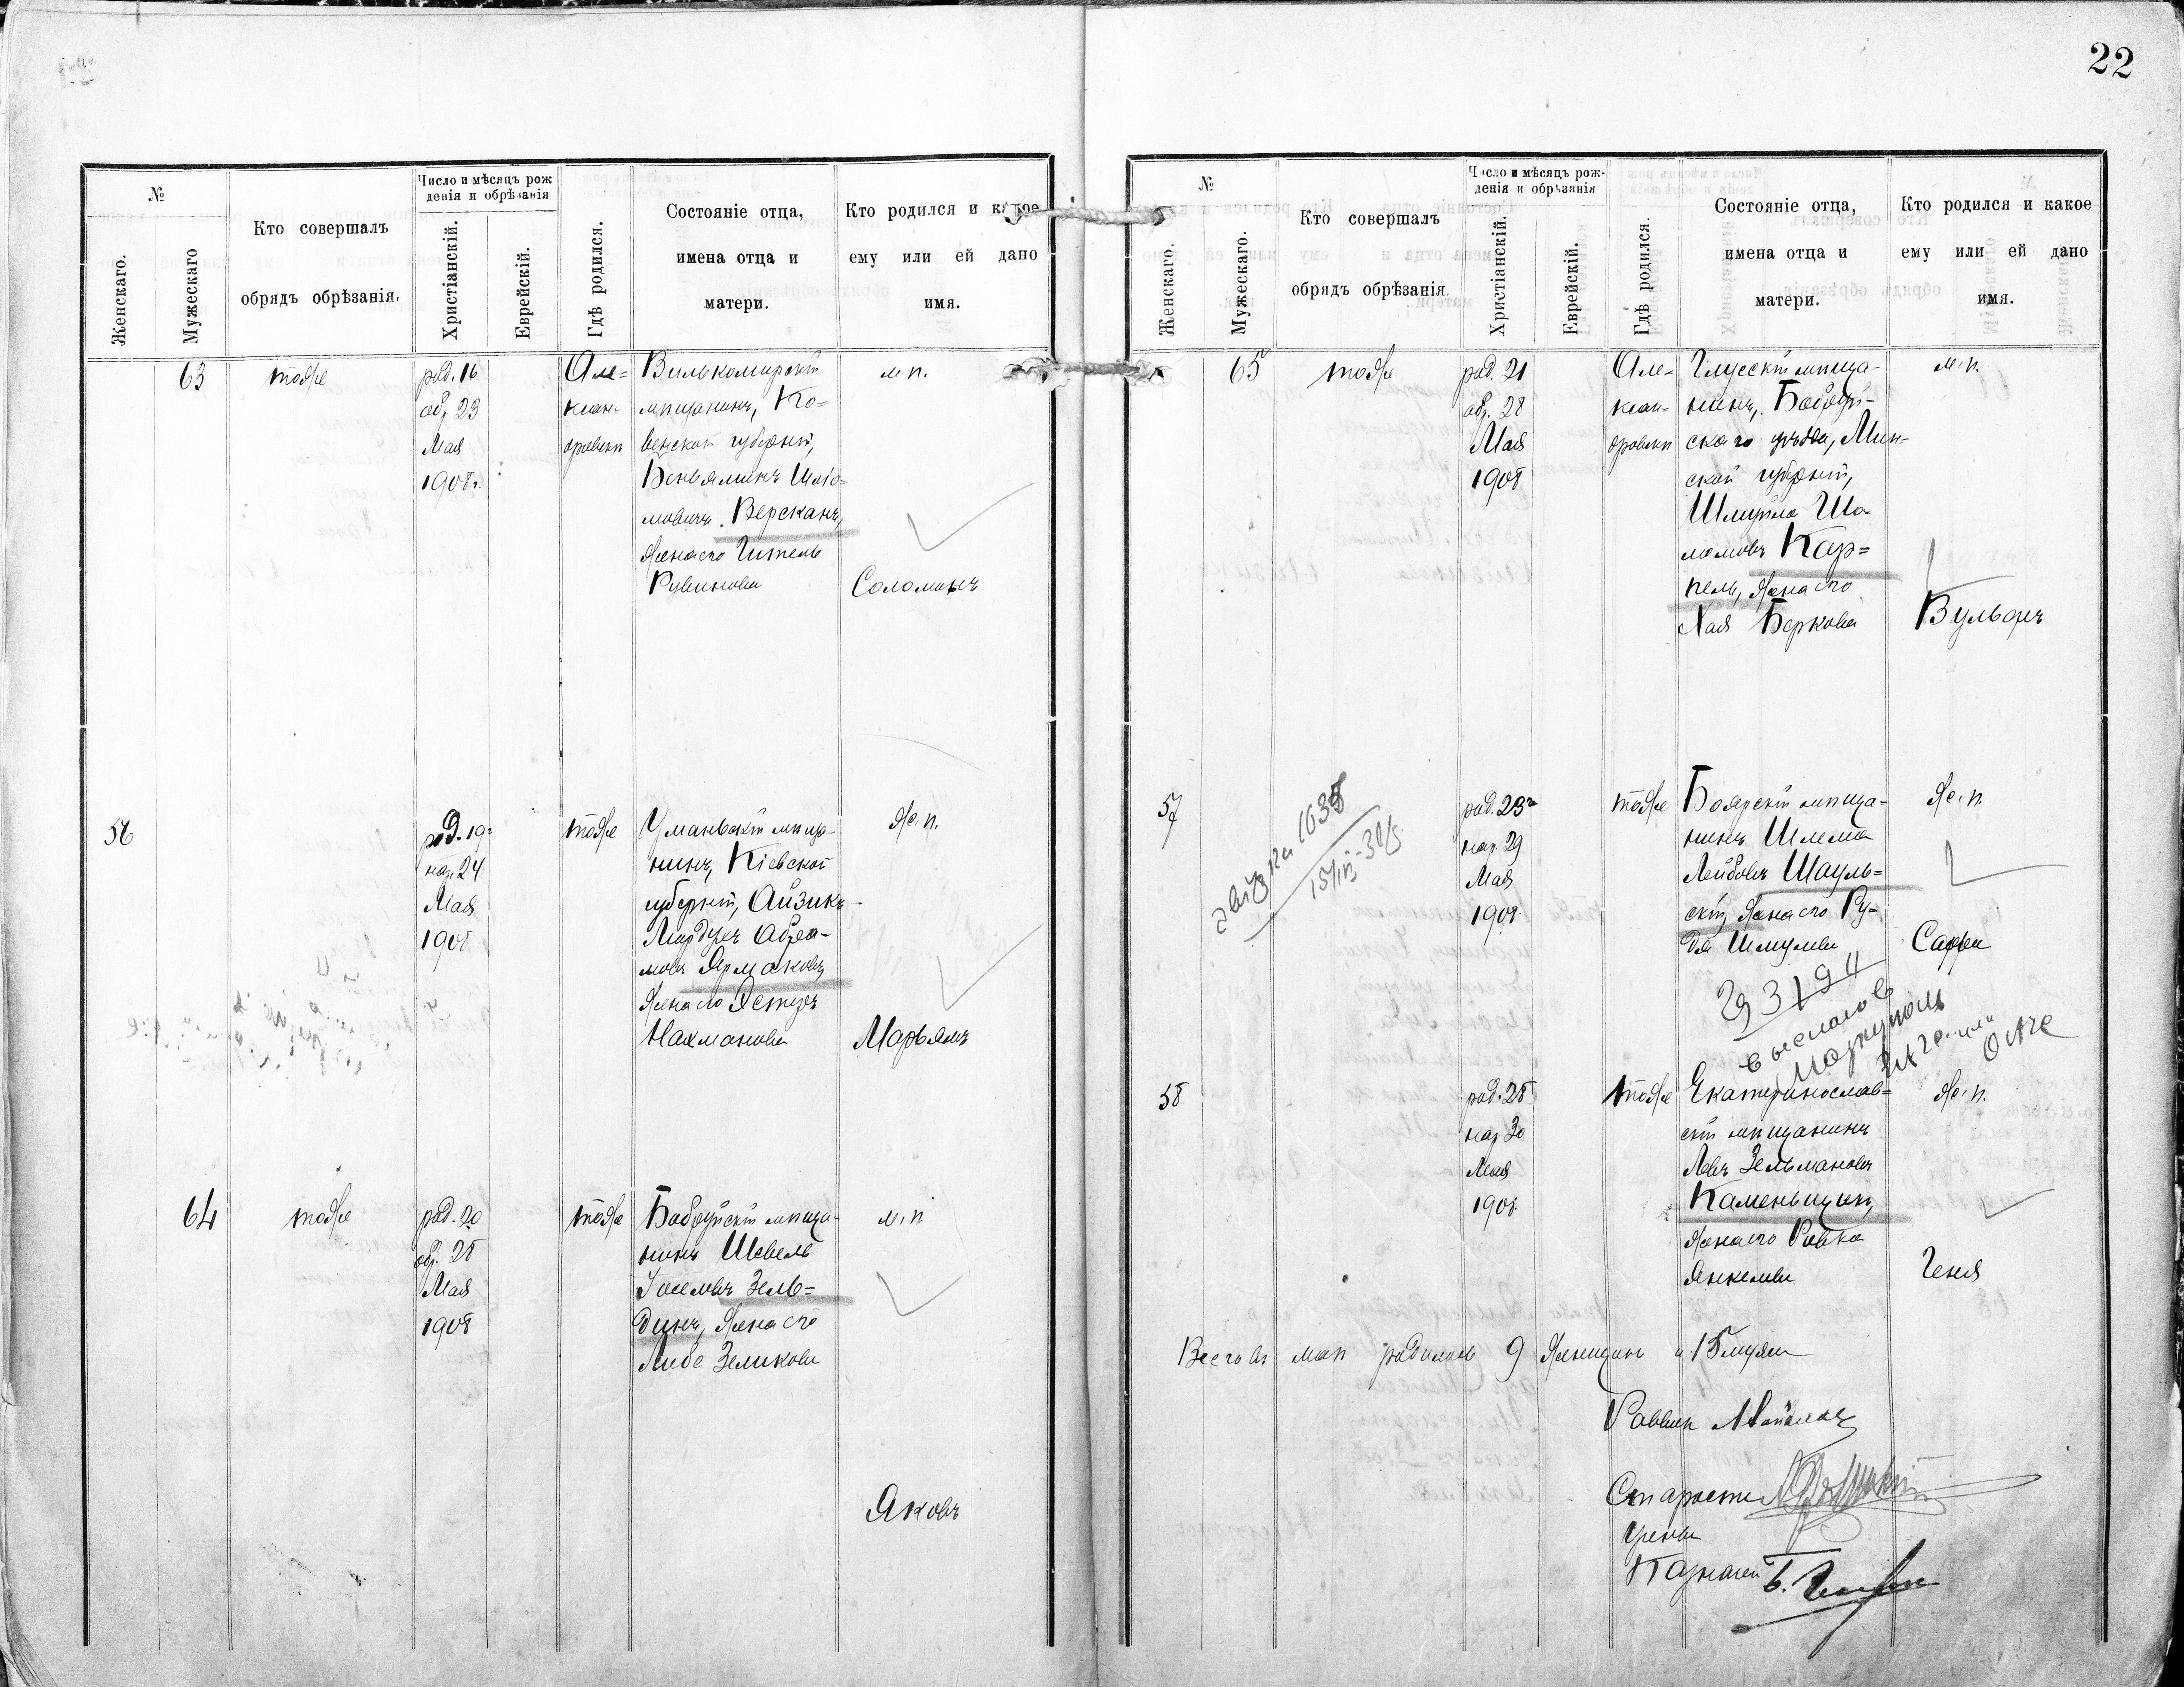 22
№
Женскаго.
Мужескаго
Кто совершалъ
обрядъ обрѣзанія.
Число и мѣсяцъ рож
денія и обрѣзанія
Христіанскій.
Еврейскій.
Гдѣ родился.
Состояніе отца,
имена отца и
матери.
Кто родился и какое
ему или ей дано
имя.
63
тоже
род. 16
обр. 23
Мая
1908 г.
Але=
ксан=
дровскѣ
Вилькомирскій
мѣщанинъ, Ко=
венской губерніи,
Беньяминъ Шліо-
мовичъ Версканъ,
жена его Гитель
Рувинова
м п.
Соломонъ
56
род. 19
нар. 24
Мая
1908
тоже
Уманьскій мѣща-
нинъ, Кіевской
губерніи, Айзикъ-
Мардухъ Абра-
мовъ Ярмаковъ,
жена его Эстеръ
Нахманова
ж. п.
Марьямъ
64
тоже
род. 20
обр. 28
Мая
1908
тоже
Бобруйскій мѣща-
нинъ Шевель
Іоселевъ Зель=
динъ, жена его
Либе Зеликова
м. п
Яковъ
№
Женскаго.
Мужескаго.
Кто совершалъ
обрядъ обрѣзанія.
Число и мѣсяцъ рож-
денія и обрѣзанія
Христіанскій.
Еврейскій.
Гдѣ родился.
Состояніе отца,
имена отца и
матери.
Кто родился и какое
ему или ей дано
имя.
65
тоже
род. 21
обр. 28
Мая
1908
Але-
ксан=
дровскѣ
Глусскій мѣща-
нинъ, Бобруй-
скаго уѣзда, Мин-
ской губерніи,
Шмуйла Шо-
ломовъ Кар=
пель, жена его
Хая Беркова
м. п.
Вульфъ
57
род. 23
нар. 29
Мая
1908
тоже
Боярскій мѣща-
нинъ Шлема
Лейбовъ Шауль=
скій, жена его Ру-
дя Шмулева
ж. п.
Сарра
выслано в
58
род. 28
нар 30
Мая
1908
тоже
Екатеринослав=
скій мѣщанинъ
Левъ Зельмановъ
Каменьщикъ,
жена его Ривка
Янкелева
ж. п.
Геня
Всего въ маѣ родилось 9 женщинъ и 15 мужч
Раввинъ
Староста
Члены
Казначей